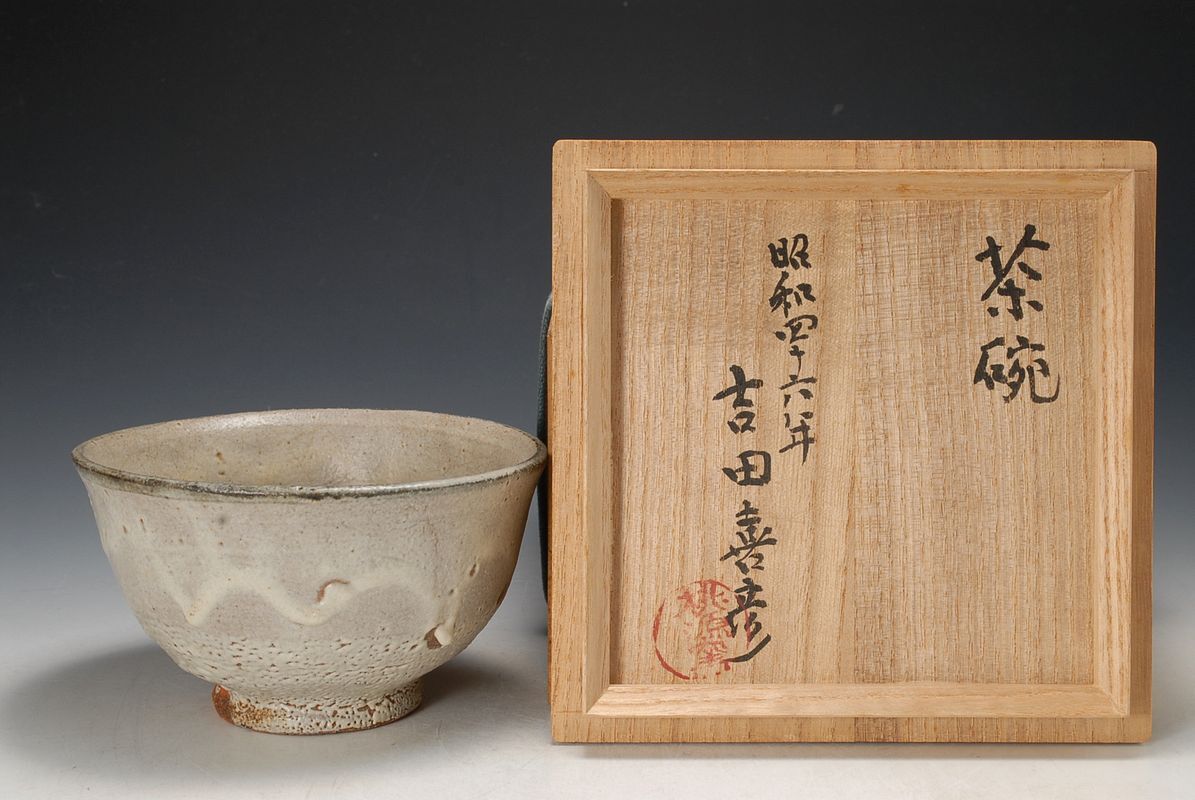 茶碗
昭和四十六年
吉田喜彦
桃原窯